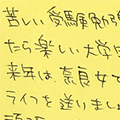 苦しい受験勉強
たら楽しい大学
来年は、奈良女で
ライフを送りまし